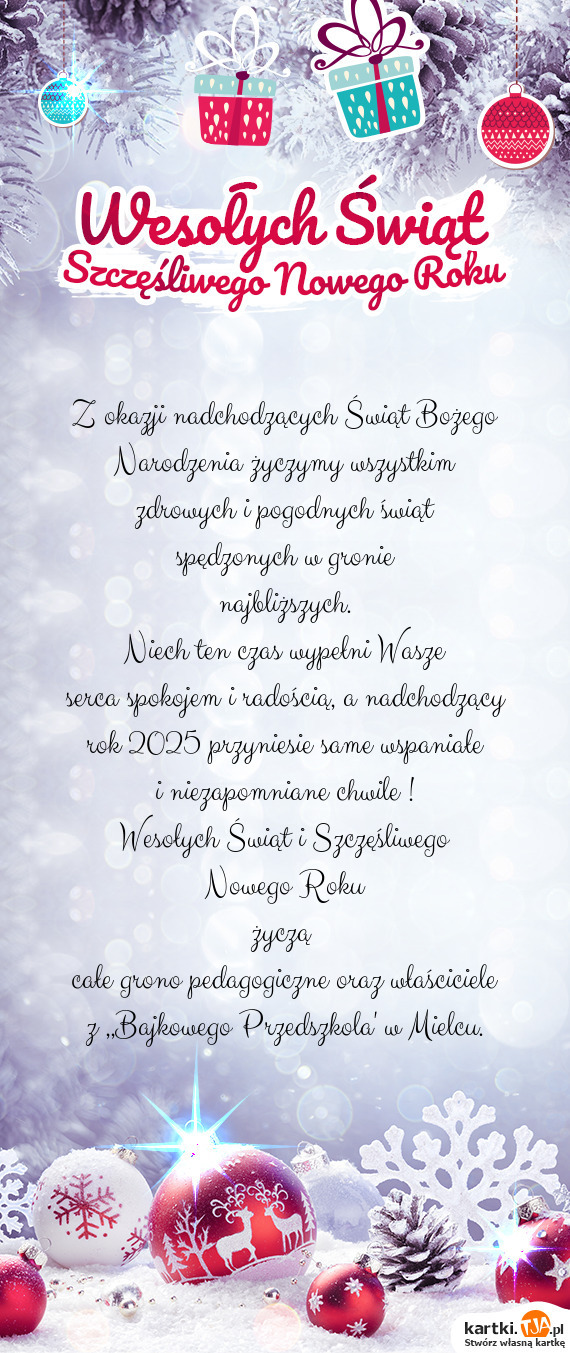 Wesołych Świąt
Szczęśliwego Nowego Roku
Z okazji nadchodzących Świąt Bożego
Narodzenia życzymy wszystkim
zdrowych i pogodnych świąt
spędzonych w gronie
najbliższych.
Niech ten czas wypełni Wasze
serca spokojem i radością, a nadchodzący
rok 2025 przyniesie same wspaniałe
i niezapomniane chwile !
Wesołych Świąt i Szczęśliwego
Nowego Roku
życzą
całe grono pedagogiczne oraz właściciele
z ,,Bajkowego Przedszkola' w Mielcu.
kartki.TJA.pl
Stwórz własną kartkę